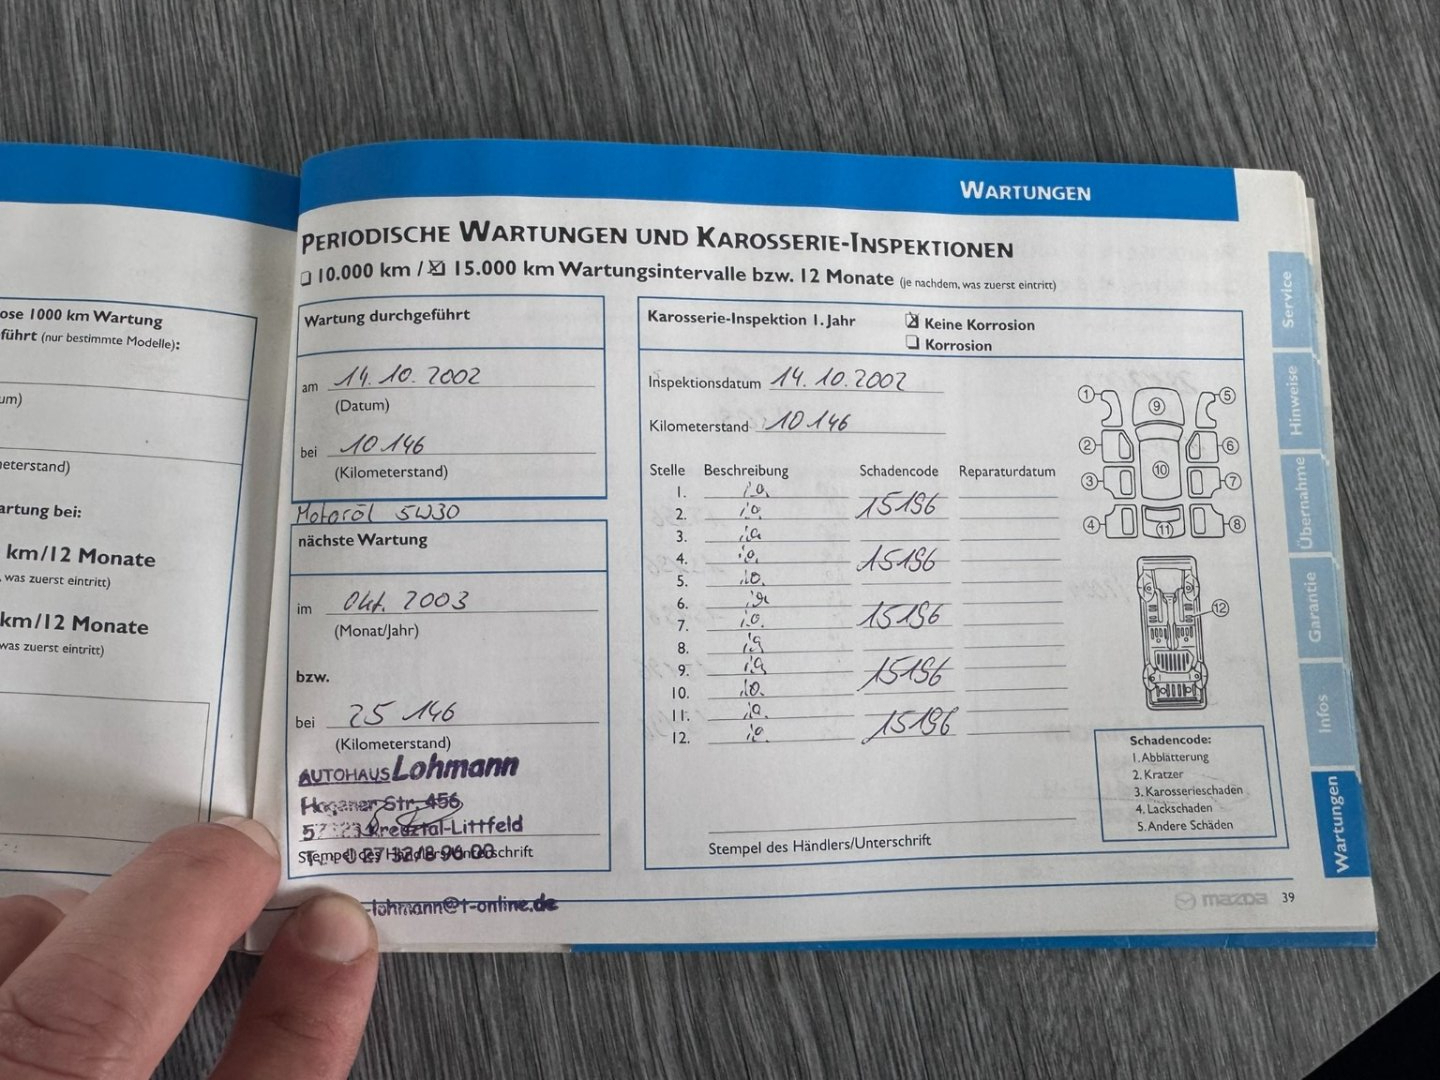 ose 1000 km Wartung
führt (nur bestimmte Modelle):
um)
eterstand)
artung bei:
km/12 Monate
, was zuerst eintritt)
km/12 Monate
was zuerst eintritt)
WARTUNGEN
PERIODISCHE WARTUNGEN UND KAROSSERIE-INSPEKTIONEN
10.000 km / 15.000 km Wartungsintervalle bzw. 12 Monate (je nachdem, was zuerst eintritt)
Wartung durchgeführt
am 14.10.2002
(Datum)
bei 10 146
(Kilometerstand)
Motoröl 5W30
nächste Wartung
im Okt. 2003
(Monat/Jahr)
bzw.
bei 25 146
(Kilometerstand)
AUTOHAUS Lohmann
Str. 456
Kreuztal-Littfeld
Stempel des Händlers/Unterschrift
-lohmann@t-online.de
Karosserie-Inspektion 1. Jahr
Keine Korrosion
Korrosion
Inspektionsdatum 14.10.2002
Kilometerstand 10 146
Stelle Beschreibung Schadencode Reparaturdatum
1. i.o.
2. i.o. 15196
3. i.o.
4. i.o. 15196
5. i.o.
6. i.o.
7. i.o. 15196
8. i.o.
9. i.o. 15196
10. i.o.
11. i.o. 15196
12. i.o.
Stempel des Händlers/Unterschrift
1 9 5
2 6
10
3 7
4 11 8
12
Schadencode:
1. Abblätterung
2. Kratzer
3. Karosserieschäden
4. Lackschäden
5. Andere Schäden
mazda 39
Service
Hinweise
Übernahme
Garantie
Infos
Wartungen